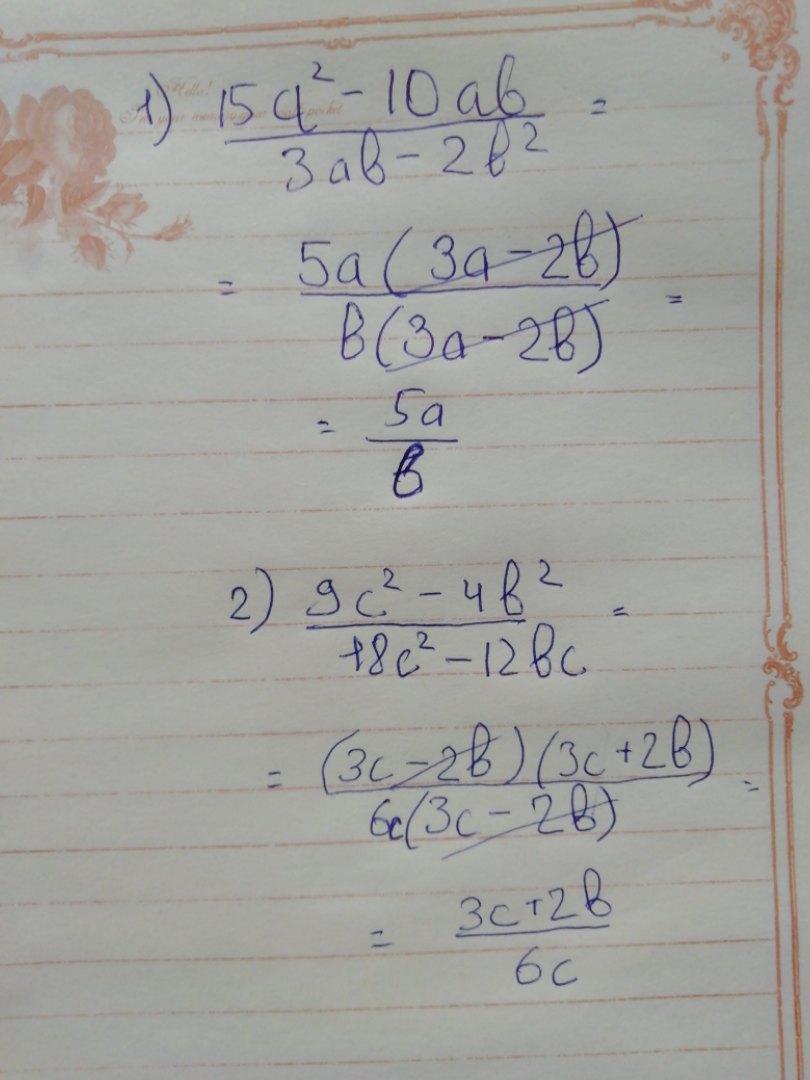 Hello!
1) (15a² - 10ab)/(3ab - 2b²) =
= (5a(3a - 2b))/(b(3a - 2b)) =
= 5a/b
2) (9c² - 4b²)/(18c² - 12bc) =
= ((3c - 2b)(3c + 2b))/(6c(3c - 2b)) =
= (3c + 2b)/(6c)